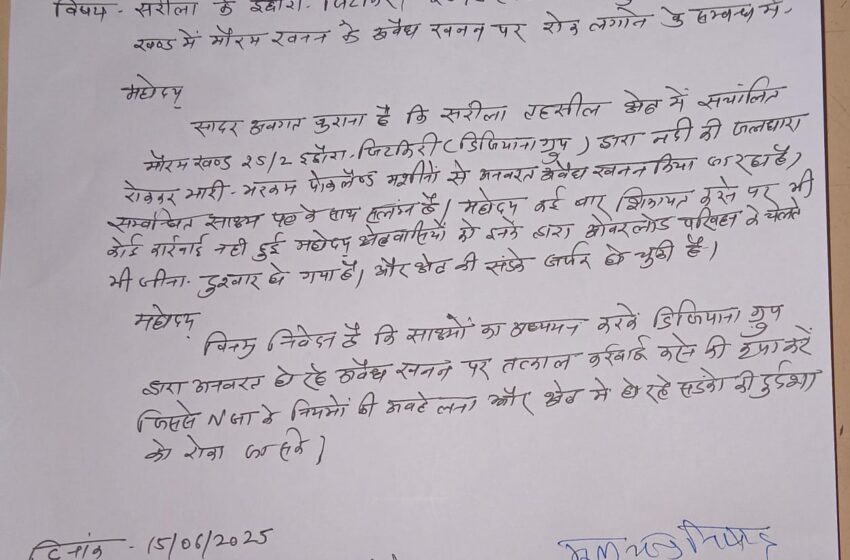 विषय - सरीला के इछौरा. जिटकिरी
खण्ड में मौरम खनन के अवैध खनन पर रोक लगाने के सम्बन्ध में.
महोदय
सादर अवगत कराना है कि सरीला तहसील क्षेत्र में संचालित
मौरम खण्ड 25/2 इछौरा-जिटकिरी (डिजियाना ग्रुप) द्वारा नदी की जलधारा
रोककर भारी-भरकम पोकलैण्ड मशीनों से अनवरत अवैध खनन किया जा रहा है,
सम्बन्धित साक्ष्य पत्र के साथ संलग्न है। महोदय कई बार शिकायत करने पर भी
कोई कार्रवाई नही हुई महोदय क्षेत्रवासियों को इनके द्वारा ओवरलोड परिवहन के चलते
भी जीना. दुश्वार हो गया है। और क्षेत्र की सड़के जर्जर हो चुकी है।
महोदय
विनम्र निवेदन है कि साक्ष्यों का अध्ययन करके डिजियाना ग्रुप
द्वारा अनवरत हो रहे अवैध खनन पर तत्काल कार्रवाई करने की कृपा करें
जिससे NGT के नियमों की अवहेलना और क्षेत्र मे हो रहे सड़को की दुर्दशा
को रोका जा सके।
दिनांक - 15/06/2025